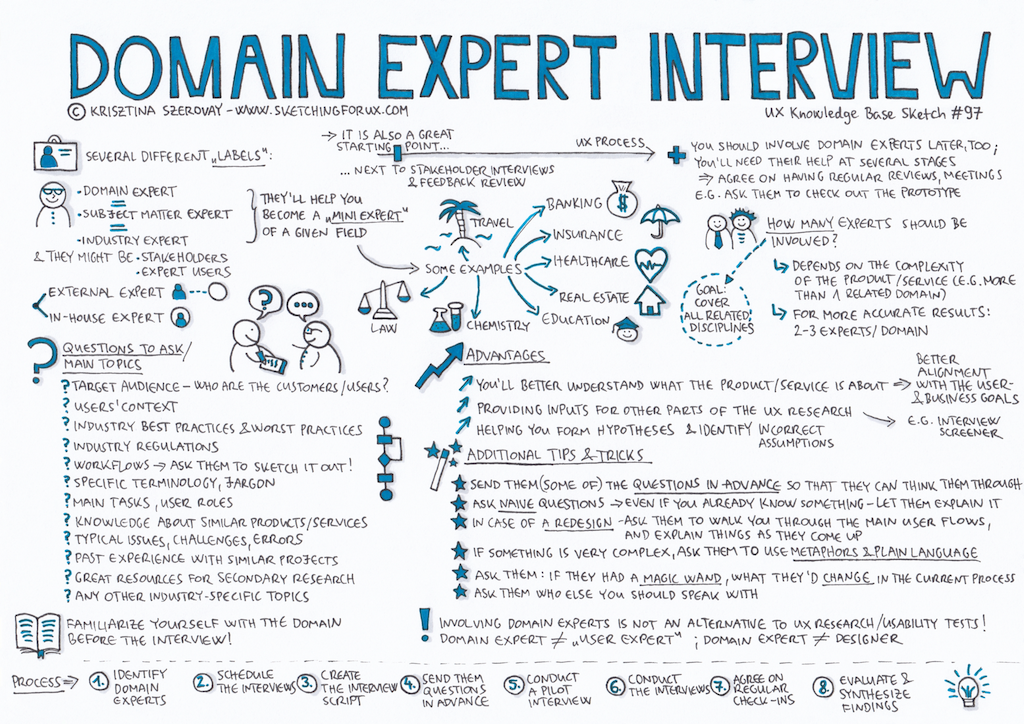 DOMAIN EXPERT INTERVIEW
© KRISZTINA SZEROVAY - WWW.SKETCHINGFORUX.COM
UX KNOWLEDGE BASE SKETCH #97
SEVERAL DIFFERENT „LABELS":
• DOMAIN EXPERT
=
• SUBJECT MATTER EXPERT
=
• INDUSTRY EXPERT
& THEY MIGHT BE • STAKEHOLDERS
• EXPERT USERS
EXTERNAL EXPERT
IN-HOUSE EXPERT
THEY'LL HELP YOU
BECOME A „MINI EXPERT"
OF A GIVEN FIELD
→ IT IS ALSO A GREAT
STARTING POINT...
UX PROCESS
... NEXT TO STAKEHOLDER INTERVIEWS
& FEEDBACK REVIEW
+ YOU SHOULD INVOLVE DOMAIN EXPERTS LATER, TOO;
YOU'LL NEED THEIR HELP AT SEVERAL STAGES
⇒ AGREE ON HAVING REGULAR REVIEWS, MEETINGS
E.G. ASK THEM TO CHECK OUT THE PROTOTYPE
SOME EXAMPLES
TRAVEL
BANKING
$
INSURANCE
HEALTHCARE
REAL ESTATE
EDUCATION
CHEMISTRY
LAW
HOW MANY EXPERTS SHOULD BE
INVOLVED?
↳ DEPENDS ON THE COMPLEXITY
OF THE PRODUCT/SERVICE (E.G. MORE
THAN 1 RELATED DOMAIN)
↳ FOR MORE ACCURATE RESULTS:
2-3 EXPERTS/DOMAIN
GOAL:
COVER
ALL RELATED
DISCIPLINES
?
...
? QUESTIONS TO ASK/
MAIN TOPICS
? TARGET AUDIENCE - WHO ARE THE CUSTOMERS/USERS?
? USERS' CONTEXT
? INDUSTRY BEST PRACTICES & WORST PRACTICES
? INDUSTRY REGULATIONS
? WORKFLOWS → ASK THEM TO SKETCH IT OUT!
? SPECIFIC TERMINOLOGY, JARGON
? MAIN TASKS, USER ROLES
? KNOWLEDGE ABOUT SIMILAR PRODUCTS/SERVICES
? TYPICAL ISSUES, CHALLENGES, ERRORS
? PAST EXPERIENCE WITH SIMILAR PROJECTS
? GREAT RESOURCES FOR SECONDARY RESEARCH
? ANY OTHER INDUSTRY-SPECIFIC TOPICS
FAMILIARIZE YOURSELF WITH THE DOMAIN
BEFORE THE INTERVIEW!
ADVANTAGES
YOU'LL BETTER UNDERSTAND WHAT THE PRODUCT/SERVICE IS ABOUT ⇒
BETTER
ALIGNMENT
WITH THE USER-
& BUSINESS GOALS
PROVIDING INPUTS FOR OTHER PARTS OF THE UX RESEARCH
E.G. INTERVIEW
SCREENER
HELPING YOU FORM HYPOTHESES & IDENTIFY INCORRECT
ASSUMPTIONS
ADDITIONAL TIPS & TRICKS
★ SEND THEM (SOME OF) THE QUESTIONS IN ADVANCE SO THAT THEY CAN THINK THEM THROUGH
★ ASK NAIVE QUESTIONS → EVEN IF YOU ALREADY KNOW SOMETHING - LET THEM EXPLAIN IT
★ IN CASE OF A REDESIGN - ASK THEM TO WALK YOU THROUGH THE MAIN USER FLOWS,
AND EXPLAIN THINGS AS THEY COME UP
★ IF SOMETHING IS VERY COMPLEX, ASK THEM TO USE METAPHORS & PLAIN LANGUAGE
★ ASK THEM: IF THEY HAD A MAGIC WAND, WHAT THEY'D CHANGE IN THE CURRENT PROCESS
★ ASK THEM WHO ELSE YOU SHOULD SPEAK WITH
! INVOLVING DOMAIN EXPERTS IS NOT AN ALTERNATIVE TO UX RESEARCH/USABILITY TESTS!
DOMAIN EXPERT ≠ „USER EXPERT" ; DOMAIN EXPERT ≠ DESIGNER
PROCESS ⇒
1. IDENTIFY
DOMAIN
EXPERTS
2. SCHEDULE
THE INTERVIEWS
3. CREATE
THE INTERVIEW
SCRIPT
4. SEND THEM
QUESTIONS
IN ADVANCE
5. CONDUCT
A PILOT
INTERVIEW
6. CONDUCT
THE INTERVIEWS
7. AGREE ON
REGULAR
CHECK-INS
8. EVALUATE &
SYNTHESIZE
FINDINGS